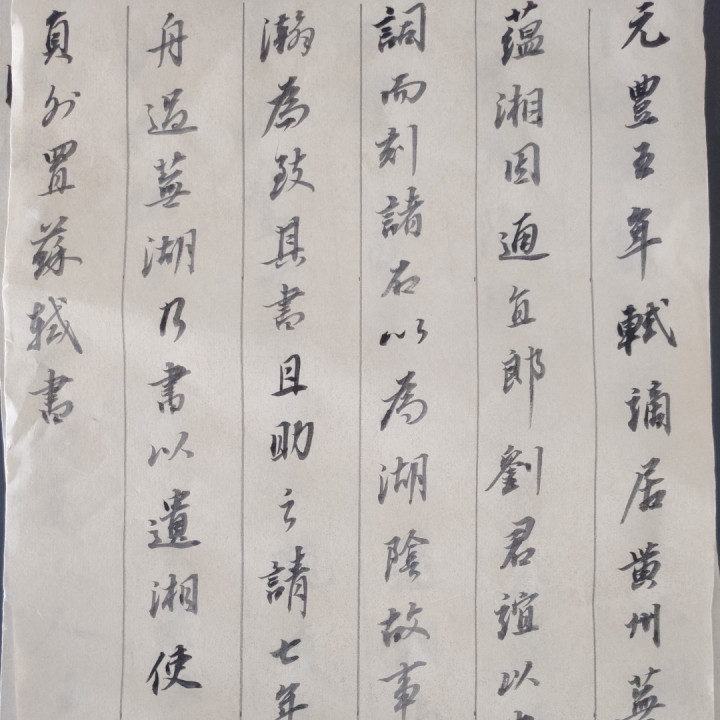 元豐五年軾謫居黃州蕪
蘊湘因通直郎劉君誼以
詞而刻諸石以為湖陰故事
瀚為致其書且助之請七年
舟過蕪湖乃書以遺湘使
真外置蘇軾書